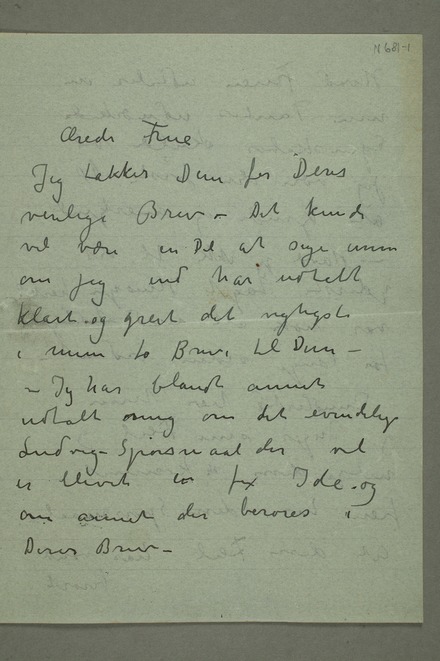 N 681-1
Ærede Frue
Jeg takker Dem for Deres
venlige Brev – Det kunde
vel være en Del at sige men
om jeg end har udtalt
klart og greit det vigtigste
i mine to Breve til Dem –
– Jeg har blandt annet
udtalt mig om det evindelige
Ludvig-Spørsmaal der vel
er blevet en fix Ide – og
om annet der berøres i
Deres Brev –